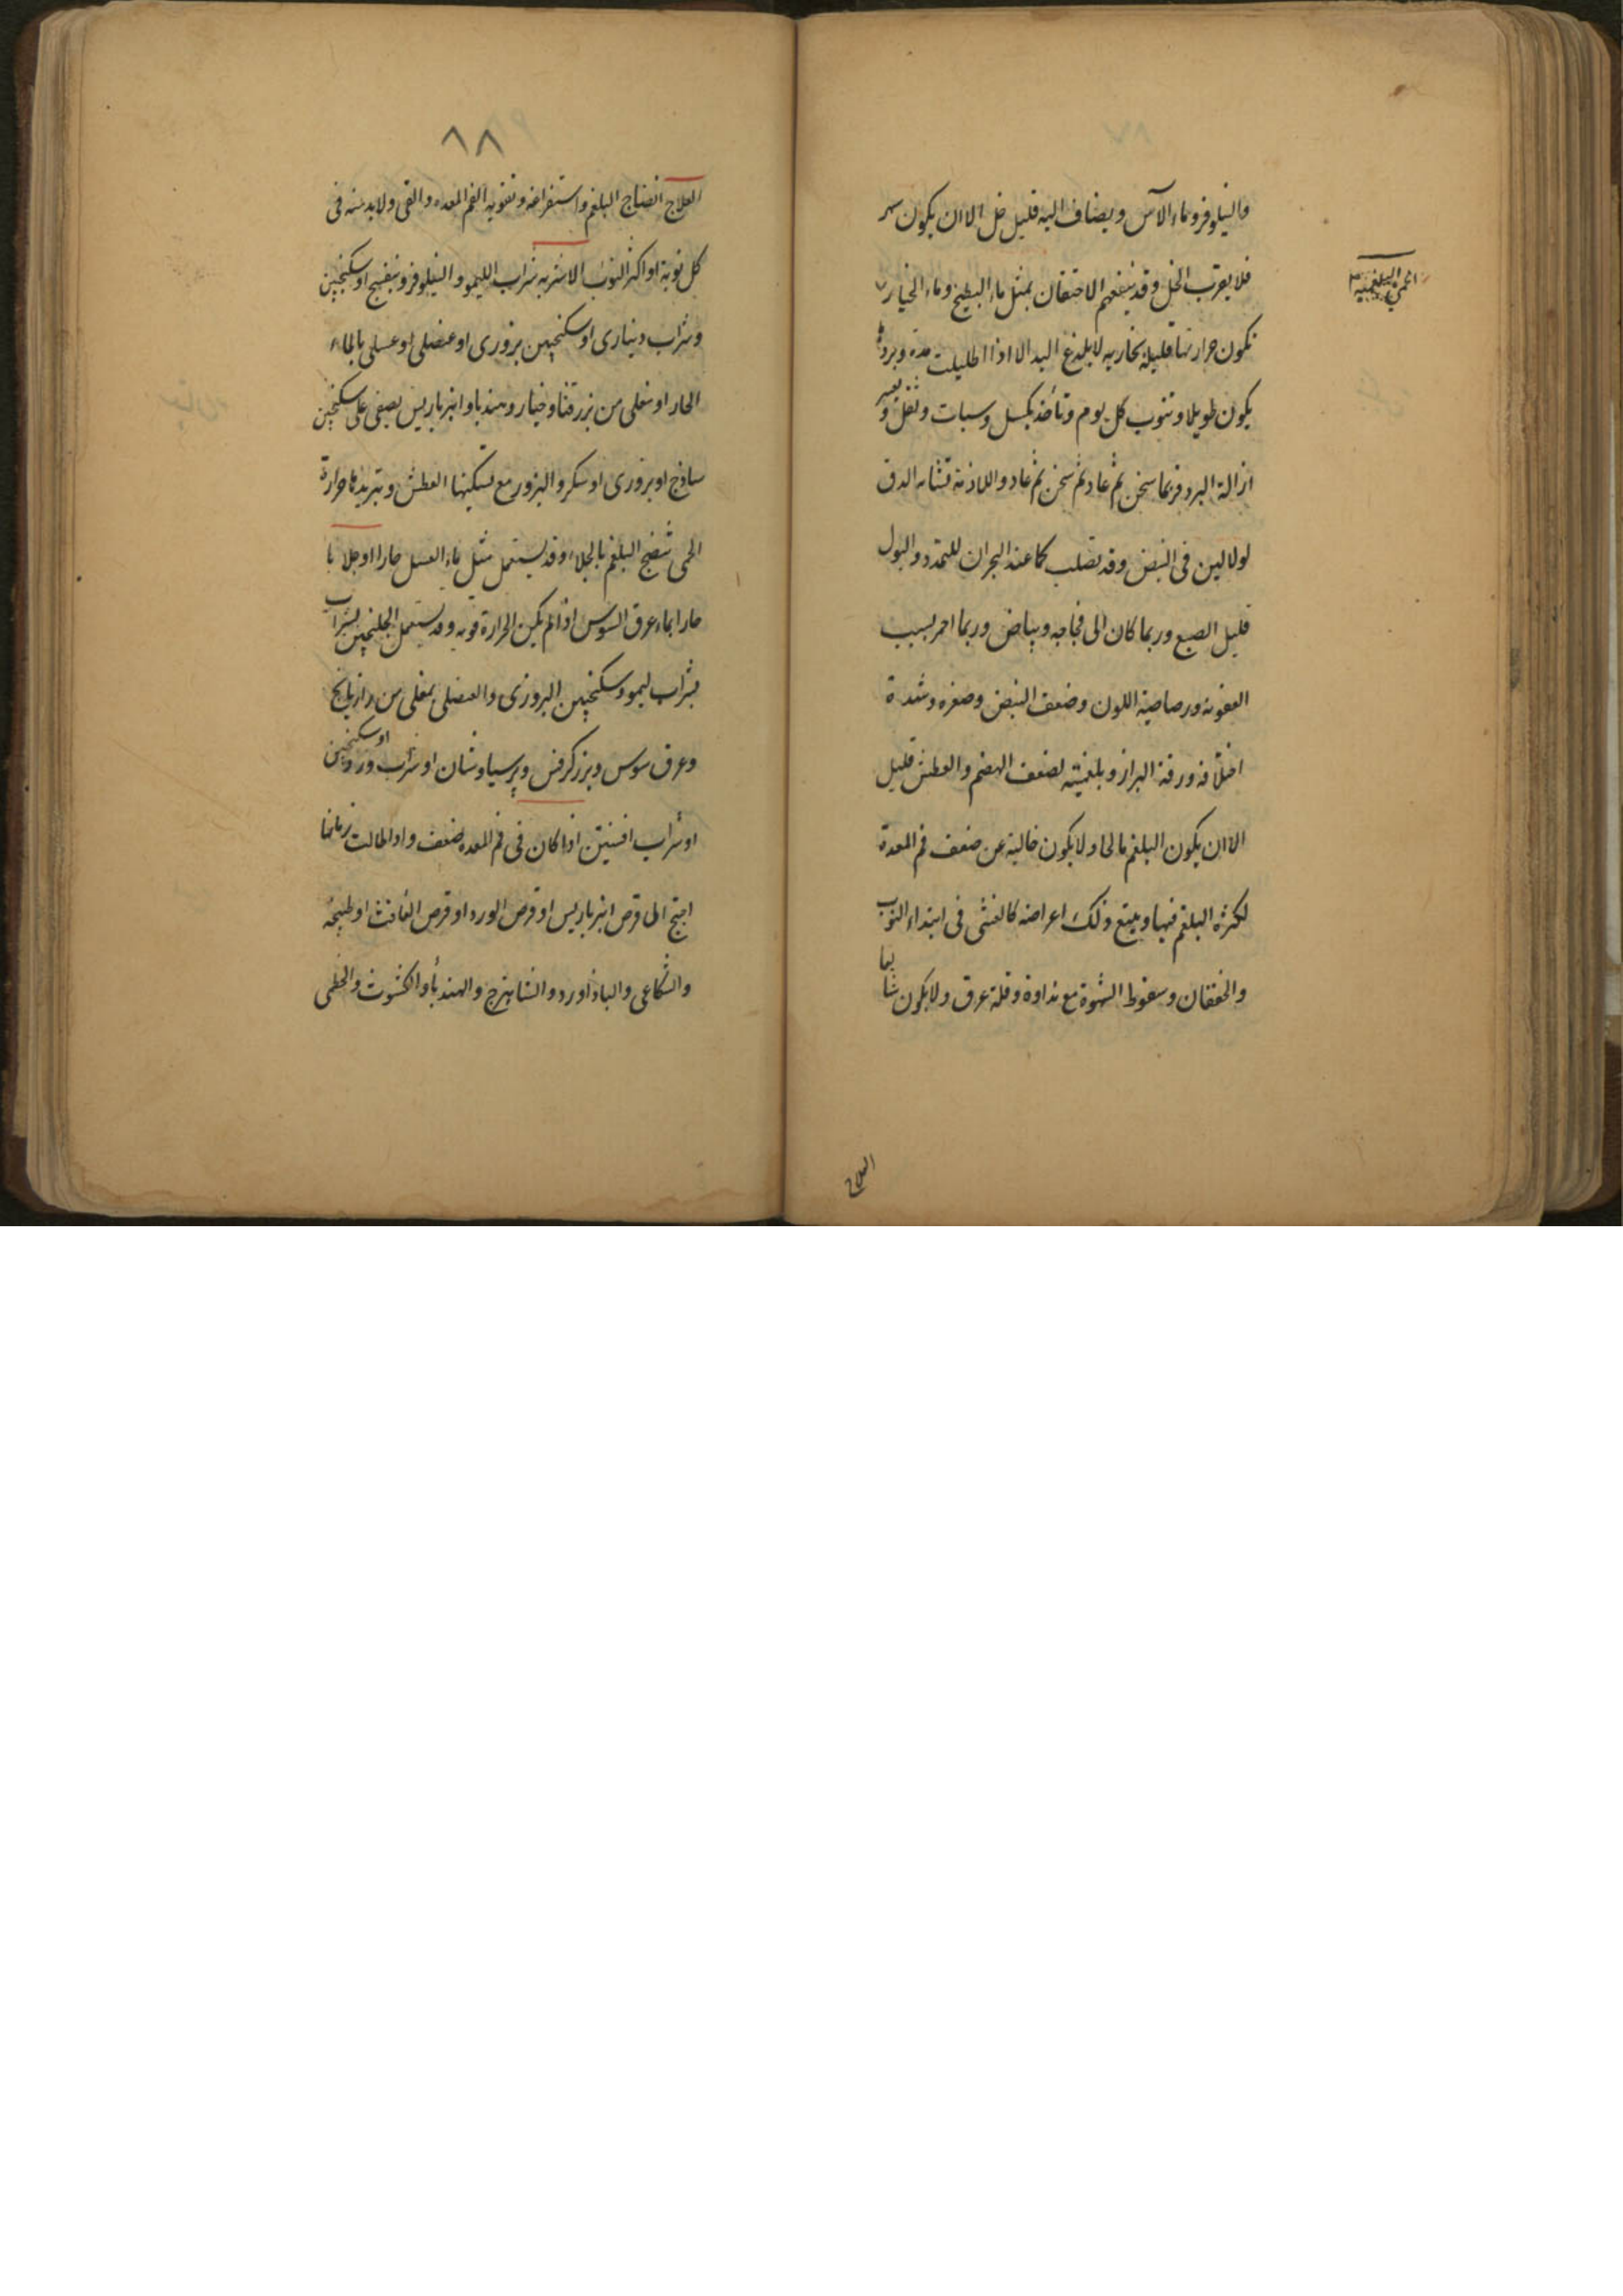 والنيلوفر وماء الآس ويضاف اليه قليل خل الا ان يكون سهر
فلا يقرب الخل وقد ينفعهم الاحتقان بمثل ماء البطيخ وماء الخيار
الحمى البلغمية
تكون حرارتها قليلة بخارية لا يلذع اليد الا اذا اطيلت مدة وبردها
يكون طويلا وتنوب كل يوم وتأخذ بكسل وسبات وثقل وتعسر
ازالة البرد فربما سخن ثم عاد ثم سخن ثم عاد واللازمة تشابه الدق
لولا لين فى النبض وقد تصلب كما عند البحران للتمدد والبول
قليل الصبغ وربما كان الى فجاجه وبياض وربما احمر بسبب
العفونة ورصاصية اللون وضعف النبض وصغره وشدة
اختلافه ورقة البراز وبلغميته لضعف الهضم والعطش قليل
الا ان يكون البلغم مالحا ولا يكون خالية عن ضعف فم المعدة
لكثرة البلغم فيها ويتبع ذلك اعراضه كالغشى فى ابتداء النوب
والخفقان وسقوط الشهوة مع نداوة وقلة عرق ولا يكون سابغا
العلاج
٨٨
العلاج انضاج البلغم واستفراغه وتقوية الفم المعده والقى ولا بد منه فى
كل نوبة او اكثر النوب الاشربه شراب الليمو والنيلوفر وبنفسج او سكنجبين
وشراب دينارى او سكنجبين بزورى او عنصلى او عسلى بالماء
الحار او مغلى من بزر قثا وخيار وهندبا وانبرباريس يصفى على سكنجبين
ساذج او بزورى او سكر والبزور مع تسكينها العطش وتبريدها حرارة
الحمى تنضج البلغم بالجلاء وقد يستعمل مثل ماء العسل حارا او جلابا
حارا بماء عرق السوس اذا لم يكن الحرارة قويه وقد يستعمل الجلنجبين بشراب
بشراب ليمو وسكنجبين البزورى والعنصلى بمغلى من رازيانج
وعرق سوس وبزر كرفس وبرسياوشان او شراب ورد او سكنجبين
او شراب افسنتين اذا كان فى فم المعده ضعف واذا طالت زمانها
احتج الى قرص انبرباريس او قرص الورد او قرص الغافث او طبيخه
والشكاعى والباذاورد والشاهترج والهندبا والكشوث والخطمى